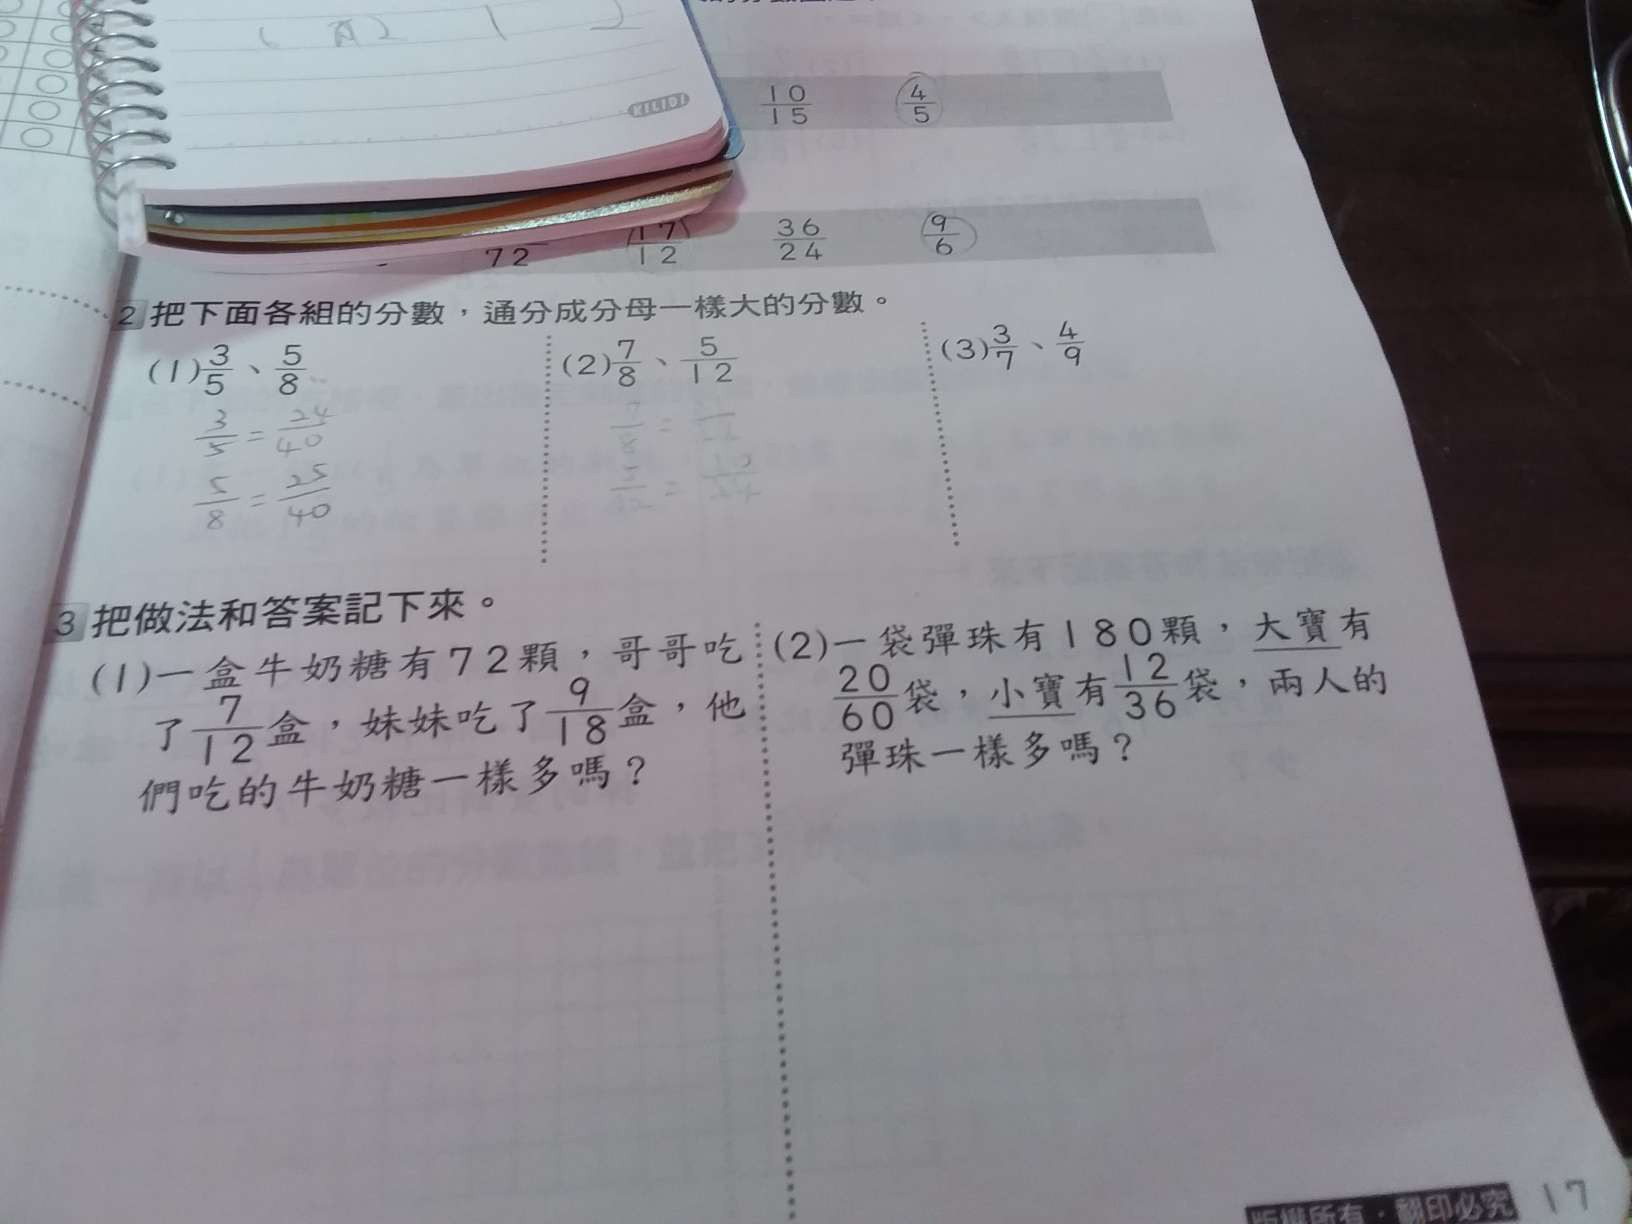 10/15 4/5
72 17/12 36/24 9/6
2 把下面各組的分數，通分成分母一樣大的分數。
(1) 3/5、5/8
3/5 = 24/40
5/8 = 25/40
(2) 7/8、5/12
7/8 =
= 10/24
(3) 3/7、4/9
3 把做法和答案記下來。
(1)一盒牛奶糖有72顆，哥哥吃
了7/12盒，妹妹吃了9/18盒，他
們吃的牛奶糖一樣多嗎？
(2)一袋彈珠有180顆，大寶有
20/60袋，小寶有12/36袋，兩人的
彈珠一樣多嗎？
版權所有・翻印必究 17